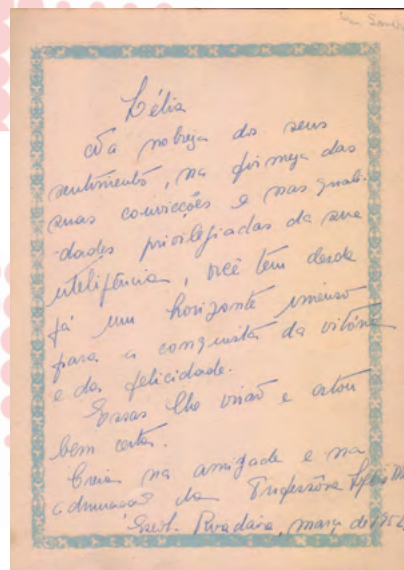 Lélia
Na nobreza dos seus
sentimentos, na firmeza das
suas convicções e nas quali-
dades privilegiadas da sua
inteligência, você tem desde
já um horizonte imenso
para a conquista da vitória
e da felicidade.
Essas lhe virão e estou
bem certa.
Creia na amizade e na
admiração da Professôra
março de 1954